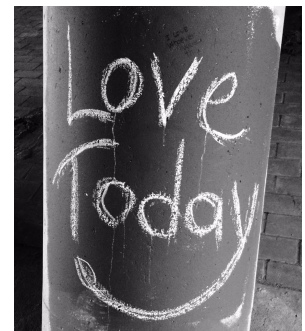 Love
Today